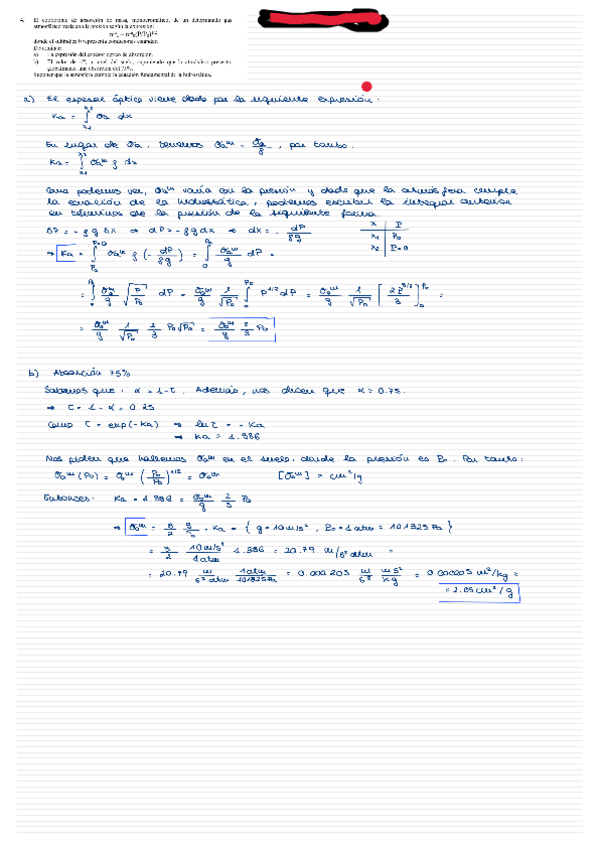 4. El coeficiente de absorción de masa, monocromático, de un determinado gas
atmosférico varía con la presión según la expresión:
donde el subíndice 0 representa condiciones estándar.
Determinar:
a) La expresión del espesor óptico de absorción.
b) El valor de a nivel del suelo, suponiendo que la atmósfera presenta
una absorción del 75%.
Suponer que la atmósfera cumple la ecuación fundamental de la hidrostática.
a) El espesor óptico viene dado por la siguiente expresión:
Ka = ∫ σa dx
En lugar de σa, tenemos σaᵐ = σa/ρ, por tanto:
Ka = ∫ σaᵐ ρ dx
Como podemos ver, σaᵐ varía con la presión y dado que la atmósfera cumple
la ecuación de la hidrostática, podemos escribir la integral anterior
en términos de la presión de la siguiente forma.
ΔP = - ρ g Δx ⇒ dP = - ρ g dx ⇒ dx = - dP/ρg
x | P
x1 | P0
x2 | P=0
⇒ Ka = ∫_{P0}^{P=0} σaᵐ ρ (- dP/ρg) = ∫_0^{P0} σaᵐ/g dP =
= ∫_0^{P0} σ0ᵐ/g √(P/P0) dP = σ0ᵐ/g 1/√P0 ∫_0^{P0} P^{1/2} dP = σ0ᵐ/g 1/√P0 [2P^{3/2}/3]_0^{P0} =
= σ0ᵐ/g 1/√P0 2/3 P0√P0 = σ0ᵐ/g 2/3 P0
b) Absorción 75%
Sabemos que: α = 1-τ. Además, nos dicen que α = 0.75.
⇒ τ = 1 - α = 0.25
Como τ = exp(-Ka) ⇒ ln τ = - Ka
⇒ Ka = 1.386
Nos piden que hallemos σaᵐ en el suelo, donde la presión es P0. Por tanto:
σaᵐ(P0) = σ0ᵐ (P0/P0)^{1/2} = σ0ᵐ [σ0ᵐ] = cm²/g
Entonces: Ka = 1.386 = σ0ᵐ/g 2/3 P0
⇒ σ0ᵐ = 3/2 g/P0 · Ka = { g = 10 m/s², P0 = 1 atm = 101325 Pa }
= 3/2 10 m/s²/1 atm 1.386 = 20.79 m/s² atm =
= 20.79 m/s² atm 1 atm/101325 Pa = 0.000205 m/s² m s²/kg = 0.000205 m²/kg =
= 2.05 cm²/g